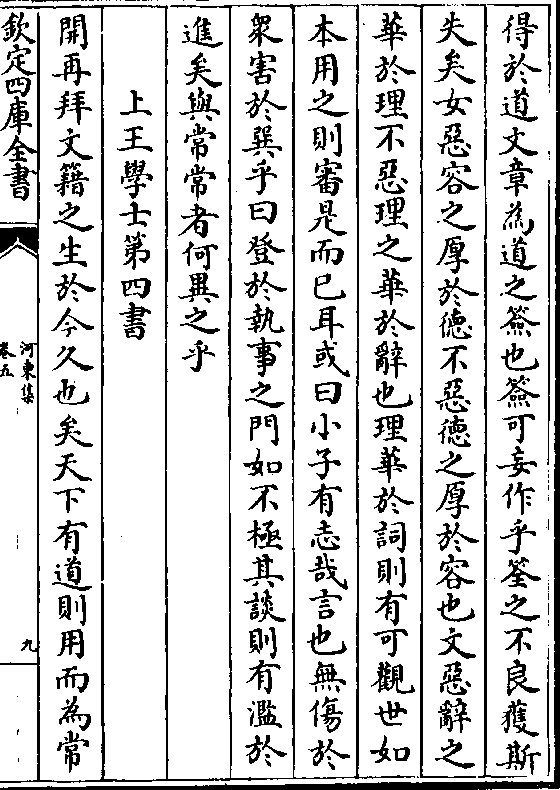 得於道文章為道之筌也筌可妄作乎筌之不良獲斯
失矣女惡容之厚於德不惡德之厚於容也文惡辭之
華於理不惡理之華於辭也理華於詞則有可觀世如
本用之則審是而已耳或曰小子有志哉言也無傷於
衆害於巽乎曰登於執事之門如不極其談則有濫於
進矣與常常者何異之乎
上王學士第四書
開再拜文籍之生於今久也矣天下有道則用而為常
欽定四庫全書
河東集
卷五
九